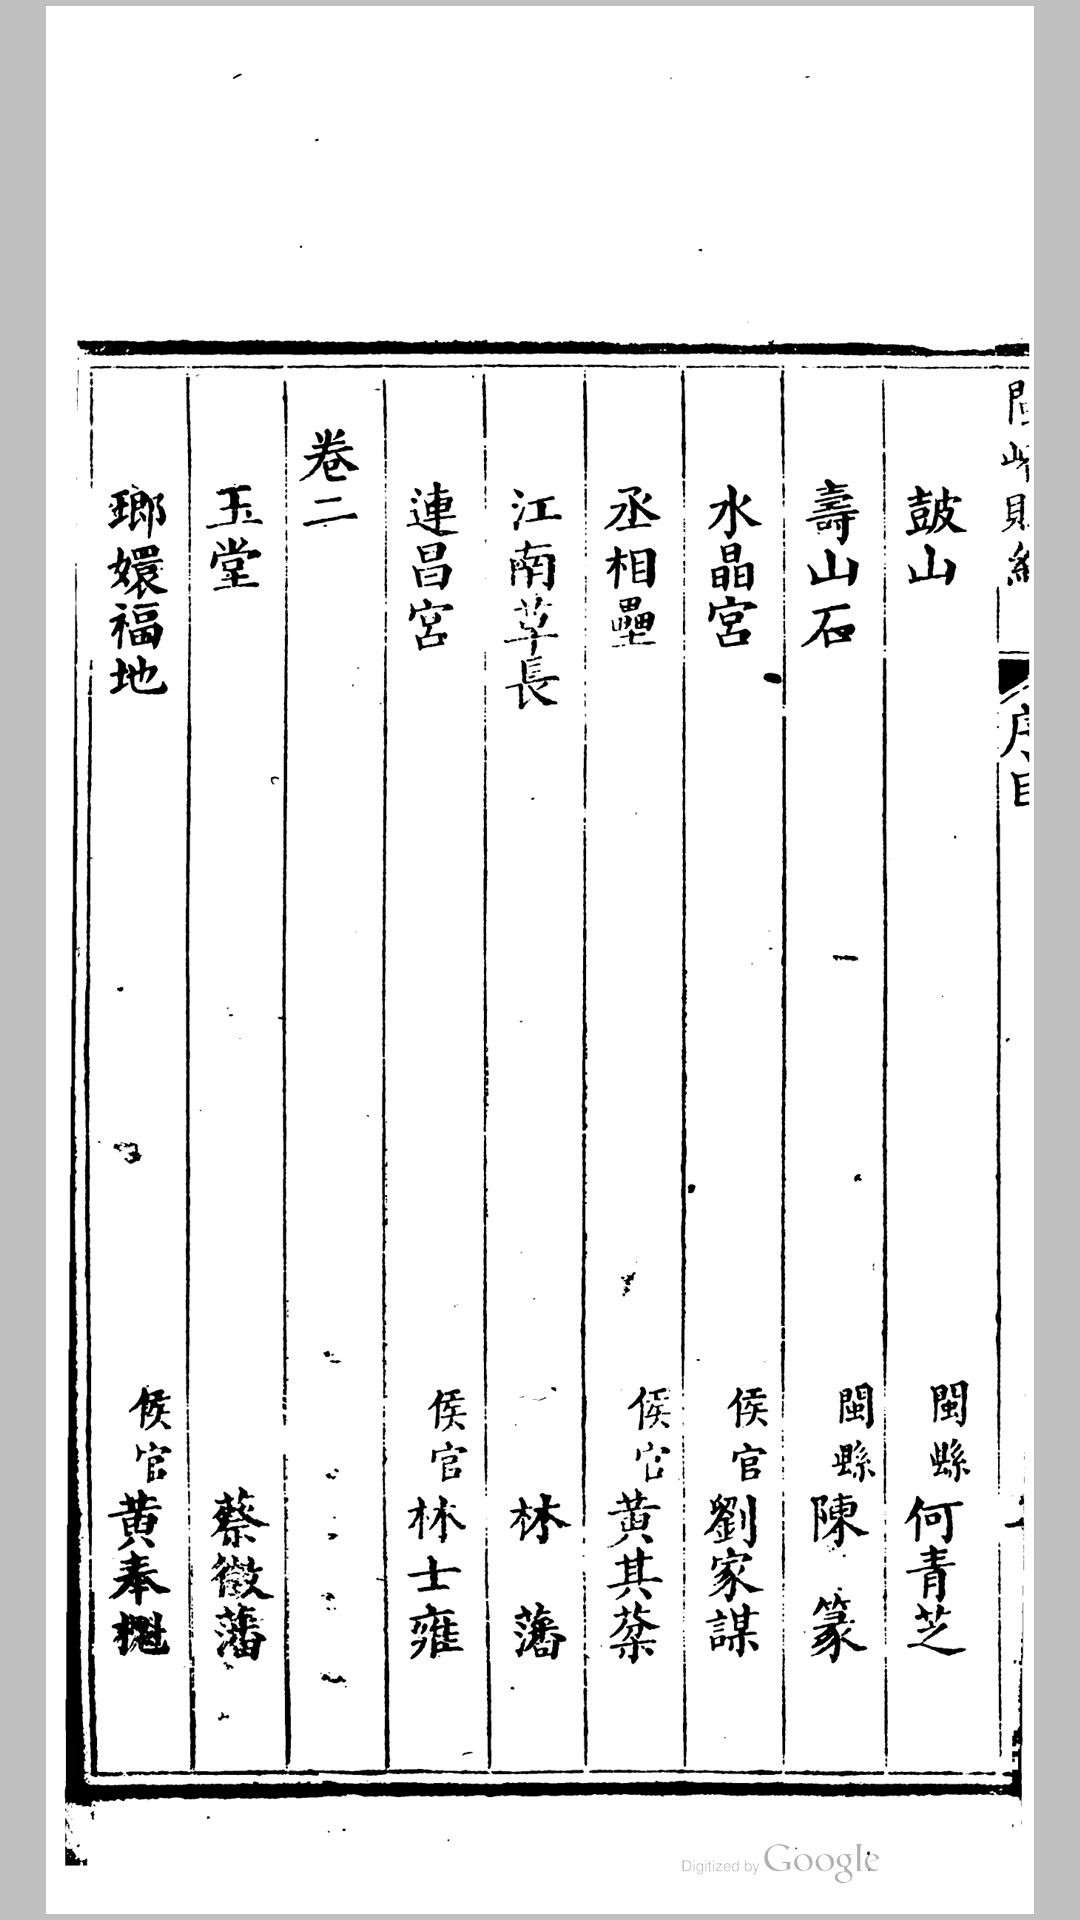 鼓山 閩縣 何青芝
壽山石 閩縣 陳篆
水晶宮 侯官 劉家謀
丞相壘 侯官 黃其棻
江南草長 林藩
連昌宮 侯官 林士雍
卷二
玉堂 蔡徵藩
瑯嬛福地 候官 黃奉
序目
Digitized by Google